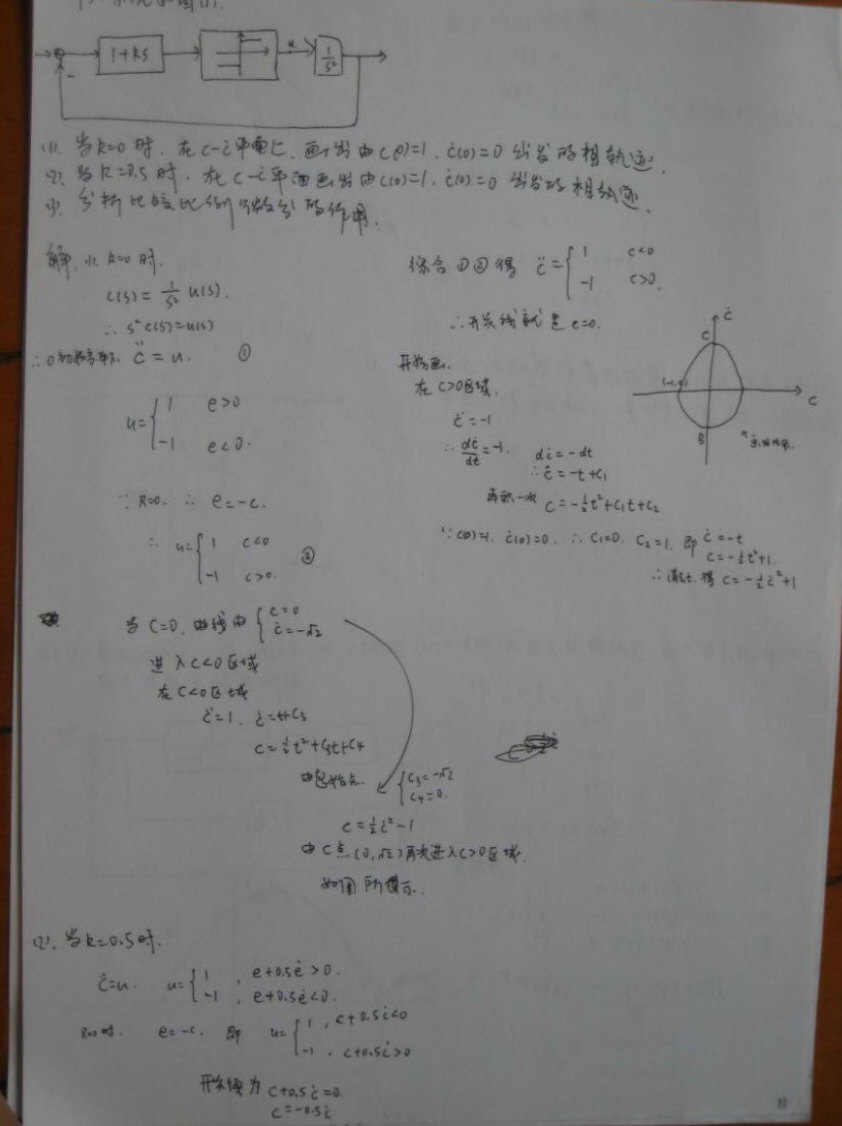 1+ks
u
1/s²
(1). 当k=0时. 在c-ċ平面上、画出由c(0)=1, ċ(0)=0出发的相轨迹.
(2). 当k=0.5时. 在c-ċ平面画出由c(0)=1, ċ(0)=0出发的相轨迹.
(3). 分析比较比例微分的作用.
解. (1). k=0时.
C(s) = 1/s² U(s).
∴ s²C(s)=U(s)
∴ 0初始条件. c̈ = u. ①
u= { 1 e>0
-1 e<0.
∵ k=0. ∴ e=-c.
∴ u= { 1 c<0 ②
-1 c>0.
综合①②得 c̈ = { 1 c<0
-1 c>0.
∴ 开关线就是 c=0.
开始画.
在c>0区域.
c̈=-1
∴ dċ/dt=-1. dċ=-dt
∴ ċ=-t+c₁
再积一次 c=-½t²+c₁t+c₂
∵ c(0)=1. ċ(0)=0. ∴ c₁=0. c₂=1. 即 ċ=-t
c=-½t²+1.
∴ 消去t. 得 c=-½ċ²+1
ċ
C
c
B
当c=0. 曲线由 { c=0
ċ=-√2
进入c<0区域
在c<0区域
c̈=1. ċ=t+c₃
c=½t²+c₃t+c₄
由起始点. { c₃=-√2
c₄=0.
c=½ċ²-1
由C点(0,√2)再次进入c>0区域.
如图所示.
(2). 当k=0.5时.
c̈=u. u= { 1 , e+0.5ė>0.
-1 , e+0.5ė<0.
e=-c. 即 u= { 1 , c+0.5ċ<0
-1 , c+0.5ċ>0
开关线为 c+0.5ċ=0
c=-0.5ċ